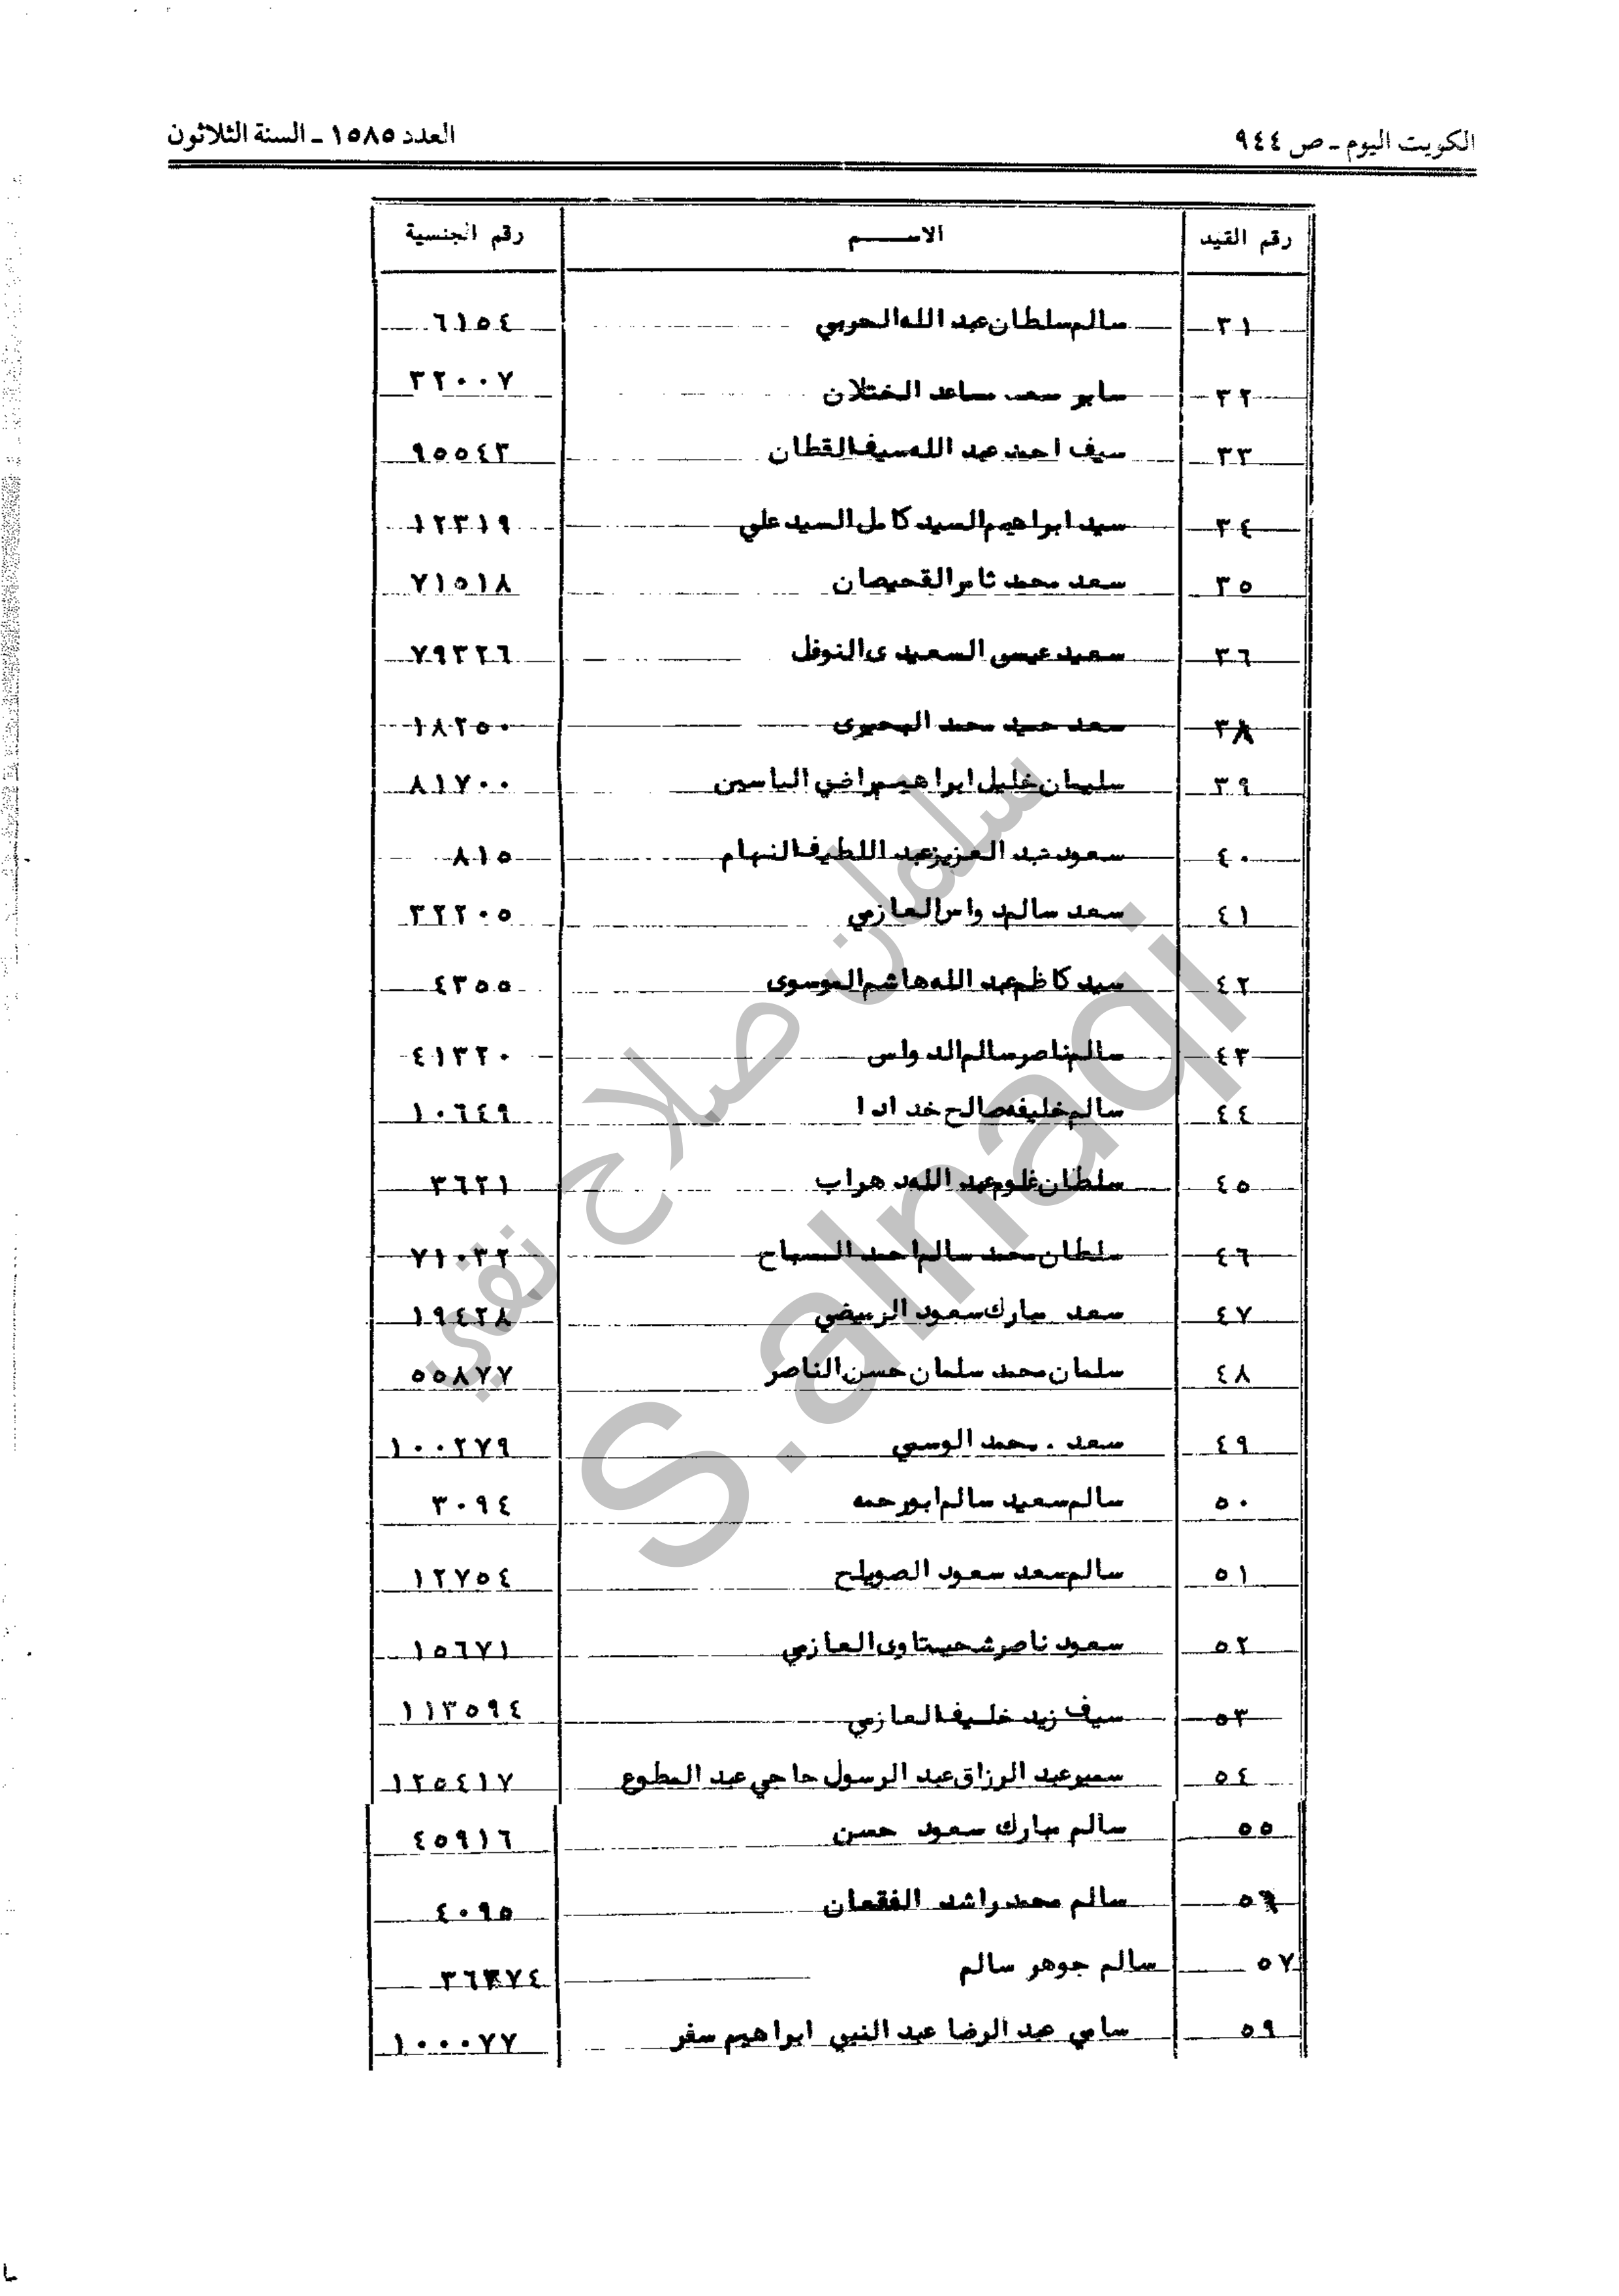 الكويت اليوم ـ ص ٩٤٤
العدد ١٥٨٥ ـ السنة الثلاثون
رقم القيد الاســـم رقم الجنسية
٣١ سالم سلطان عبد الله الحربي ٦١٥٤
٣٢ ساير سعد ساعد الختلان ٣٢٠٠٧
٣٣ سيف احمد عبد الله سيف القطان ٩٥٥٤٣
٣٤ سيد ابراهيم السيد كامل السيد علي ١٢٣١٩
٣٥ سعد محمد ثامر القحيصان ٧١٥١٨
٣٦ سعيد عيسى السعيدى النوفل ٧٩٣٢٦
٣٨ سعد حميد محمد البحيرى ١٨٢٥٠
٣٩ سليمان خليل ابراهيم راضي الياسين ٨١٧٠٠
٤٠ سعود عبد العزيز عبد اللطيف النهام ٨١٥
٤١ سعد سالم دواس العازمي ٣٢٢٠٥
٤٢ سيد كاظم عبد الله هاشم الموسوى ٤٣٥٥
٤٣ سالم ناصر سالم الدواس ٤١٣٢٠
٤٤ سالم خليفه صالح خدادا ١٠٦٤٩
٤٥ سلطان غلوم عبد الله دهراب ٣٦٢١
٤٦ سلطان محمد سالم احمد السباح ٧١٠٣٢
٤٧ سعد مبارك سعود الربيضي ١٩٤٢٨
٤٨ سلمان محمد سلمان حسن الناصر ٥٥٨٧٧
٤٩ سعد . محمد الوسمي ١٠٠٢٧٩
٥٠ سالم سعيد سالم ابورحمه ٣٠٩٤
٥١ سالم سعد سعود الصويلح ١٢٧٥٤
٥٢ سعود ناصر شحيتاوى العازمي ١٥٦٧١
٥٣ سيف زيد خليف العازمي ١١٣٥٩٤
٥٤ سمير عبد الرزاق عبد الرسول حاجي عبد المطوع ١٢٥٤١٧
٥٥ سالم مبارك سعود حسن ٤٥٩١٦
٥٦ سالم محمد راشد الفقعان ٤٠٩٥
٥٧ سالم جوهر سالم
٥٩ سامي عبد الرضا عبد النبي ابراهيم سفر ١٠٠٠٧٧
سلمان صلاح نقي
S.alnaqi